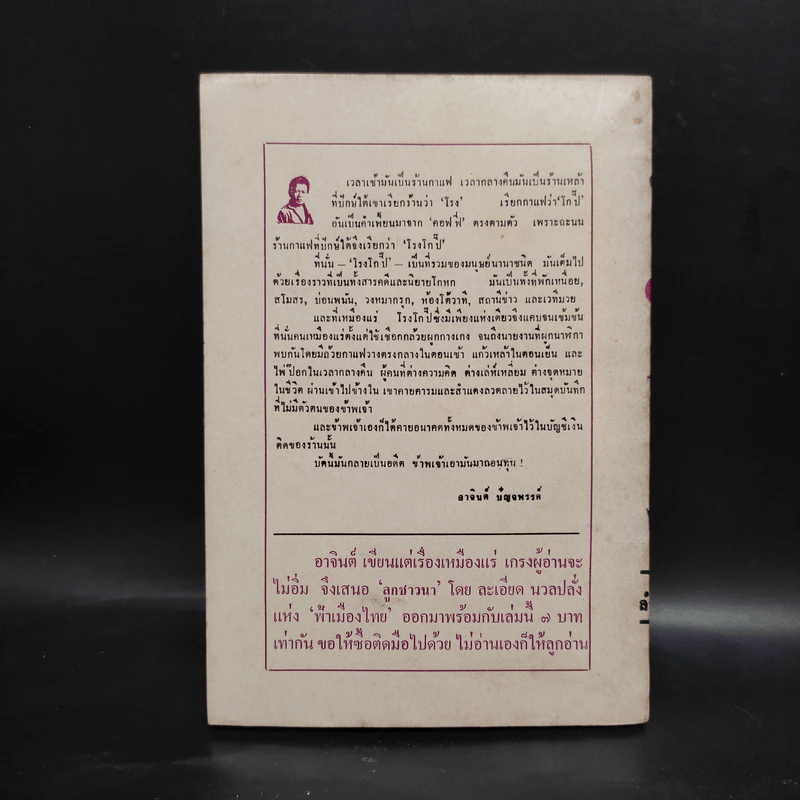 เวลาเช้ามันเป็นร้านกาแฟ เวลากลางคืนมันเป็นร้านเหล้า
ที่ปักษ์ใต้เขาเรียกร้านว่า 'โรง' เรียกกาแฟว่า 'โกปี๊'
อันเป็นคำเพี้ยนมาจาก 'คอฟฟี่' ตรงตามตัว เพราะฉะนั้น
ร้านกาแฟที่ปักษ์ใต้จึงเรียกว่า 'โรงโกปี๊'
ที่นั่น – 'โรงโกปี๊' – เป็นที่รวมของมนุษย์นานาชนิด มันเต็มไป
ด้วยเรื่องราวที่เป็นทั้งสารคดีและนิยายโกหก มันเป็นทั้งที่พักเหนื่อย,
สโมสร, บ่อนพนัน, วงหมากรุก, ห้องโต้วาที, สถานีข่าว และเวทีมวย
และที่เหมืองแร่ โรงโกปี๊ซึ่งมีเพียงแห่งเดียวจึงแคบจนเข้มข้น
ที่นั่นคนเหมืองแร่ตั้งแต่ใช้เชือกกล้วยผูกกางเกง จนถึงนายงานที่ผูกนาฬิกา
พบกันโดยมีถ้วยกาแฟวางตรงกลางในตอนเช้า แก้วเหล้าในตอนเย็น และ
ไพ่ป๊อกในเวลากลางคืน ผู้คนที่ต่างความคิด ต่างเล่ห์เหลี่ยม ต่างจุดหมาย
ในชีวิต ผ่านเข้าไปข้างใน เขาคายคารมและสำแดงลวดลายไว้ในสมุดบันทึก
ที่ไม่มีตัวตนของข้าพเจ้า
และข้าพเจ้าเองก็ได้คายอนาคตทั้งหมดของข้าพเจ้าไว้ในบัญชีเงิน
ติดของร้านนั้น
บัดนี้มันกลายเป็นอดีต ข้าพเจ้าเอามันมาถอนทุน !
อาจินต์ ปัญจพรรค์
อาจินต์ เขียนแต่เรื่องเหมืองแร่ เกรงผู้อ่านจะ
ไม่อิ่ม จึงเสนอ 'ลูกชาวนา' โดย ละเอียด นวลปลั่ง
แห่ง 'ฟ้าเมืองไทย' ออกมาพร้อมกับเล่มนี้ ๗ บาท
เท่ากัน ขอให้ซื้อติดมือไปด้วย ไม่อ่านเองก็ให้ลูกอ่าน